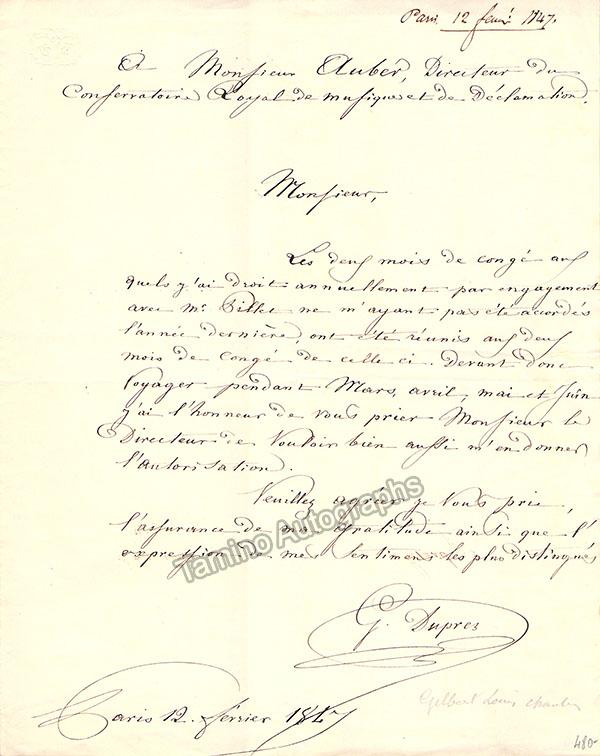 Paris 12 févr 1847.
A Monsieur Auber, Directeur du
Conservatoire Royal de musique et de Déclamation.
Monsieur,
Les deux mois de congé aux
quels j'ai droit annuellement par engagement
avec Mr Pillet ne m'ayant pas été accordés
l'année dernière, ont été réunis aux deux
mois de congé de celle ci. Devant donc
voyager pendant Mars, avril, mai et Juin
j'ai l'honneur de vous prier Monsieur le
Directeur de vouloir bien aussi m'en donner
l'autorisation.
Veuillez agréer je vous prie,
l'assurance de ma gratitude ainsi que l'
expression de mes sentimens les plus distingués
Tamino Autographs
G. Duprez
Paris 12. février 1847
Gilbert Louis
480-